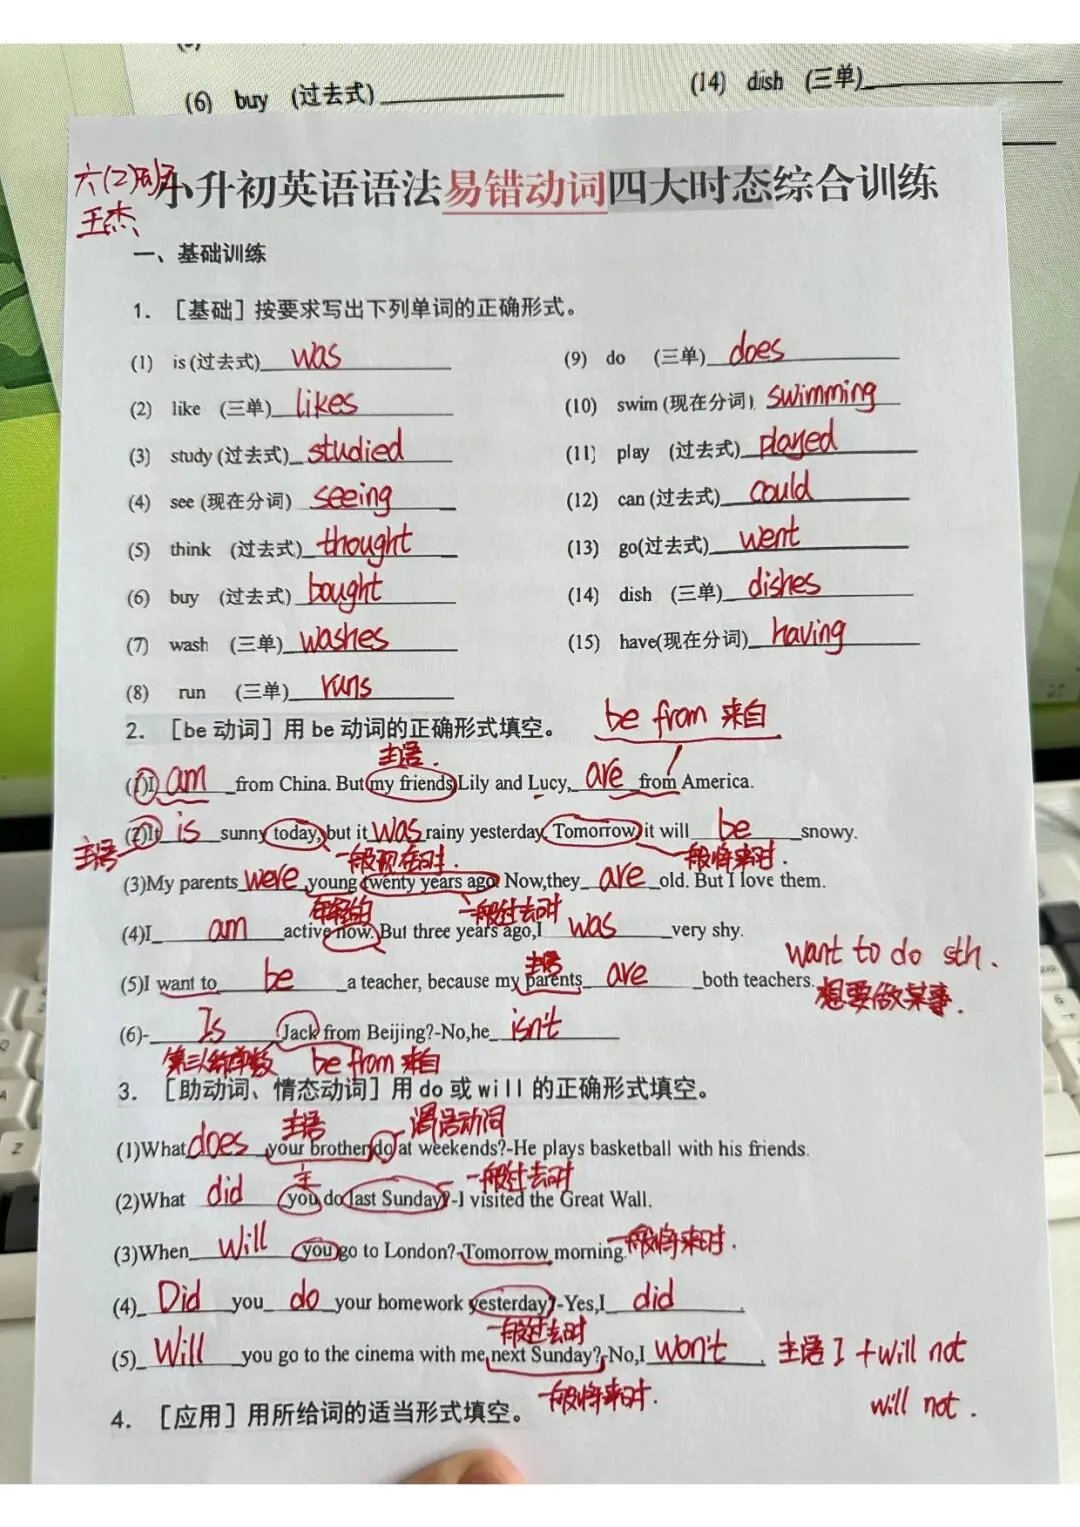 (6) buy (过去式)
(14) dish (三单)
六(2)班
王杰
小升初英语语法易错动词四大时态综合训练
一、基础训练
1. [基础]按要求写出下列单词的正确形式。
(1) is(过去式) was
(9) do (三单) does
(2) like (三单) likes
(10) swim (现在分词) swimming
(3) study (过去式) studied
(11) play (过去式) played
(4) see (现在分词) seeing
(12) can (过去式) could
(5) think (过去式) thought
(13) go(过去式) went
(6) buy (过去式) bought
(14) dish (三单) dishes
(7) wash (三单) washes
(15) have(现在分词) having
(8) run (三单) runs
be from 来自
2. [be 动词]用 be 动词的正确形式填空。
主语.
(1)I am from China. But my friends Lily and Lucy, are from America.
(2)It is sunny today, but it was rainy yesterday. Tomorrow it will be snowy.
主语 一般现在时. 一般将来时.
(3)My parents were young twenty years ago. Now,they are old. But I love them.
年轻的 一般过去时
(4)I am active now. But three years ago,I was very shy.
want to do sth.
主语
(5)I want to be a teacher, because my parents are both teachers.
想要做某事.
(6)- Is Jack from Beijing?-No,he isn't
第三人称单数 be from 来自
3. [助动词、情态动词]用 do 或 will 的正确形式填空。
主语 谓语动词
(1)What does your brother do at weekends?-He plays basketball with his friends.
主 一般过去时
(2)What did you do last Sunday?-I visited the Great Wall.
(3)When Will you go to London?-Tomorrow morning. 一般将来时.
(4) Did you do your homework yesterday?-Yes,I did .
一般过去时
(5) Will you go to the cinema with me next Sunday?-No,I won't . 主语 I + will not
一般将来时. will not .
4. [应用]用所给词的适当形式填空。